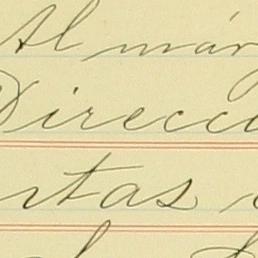 Al már
Direcci
rtas